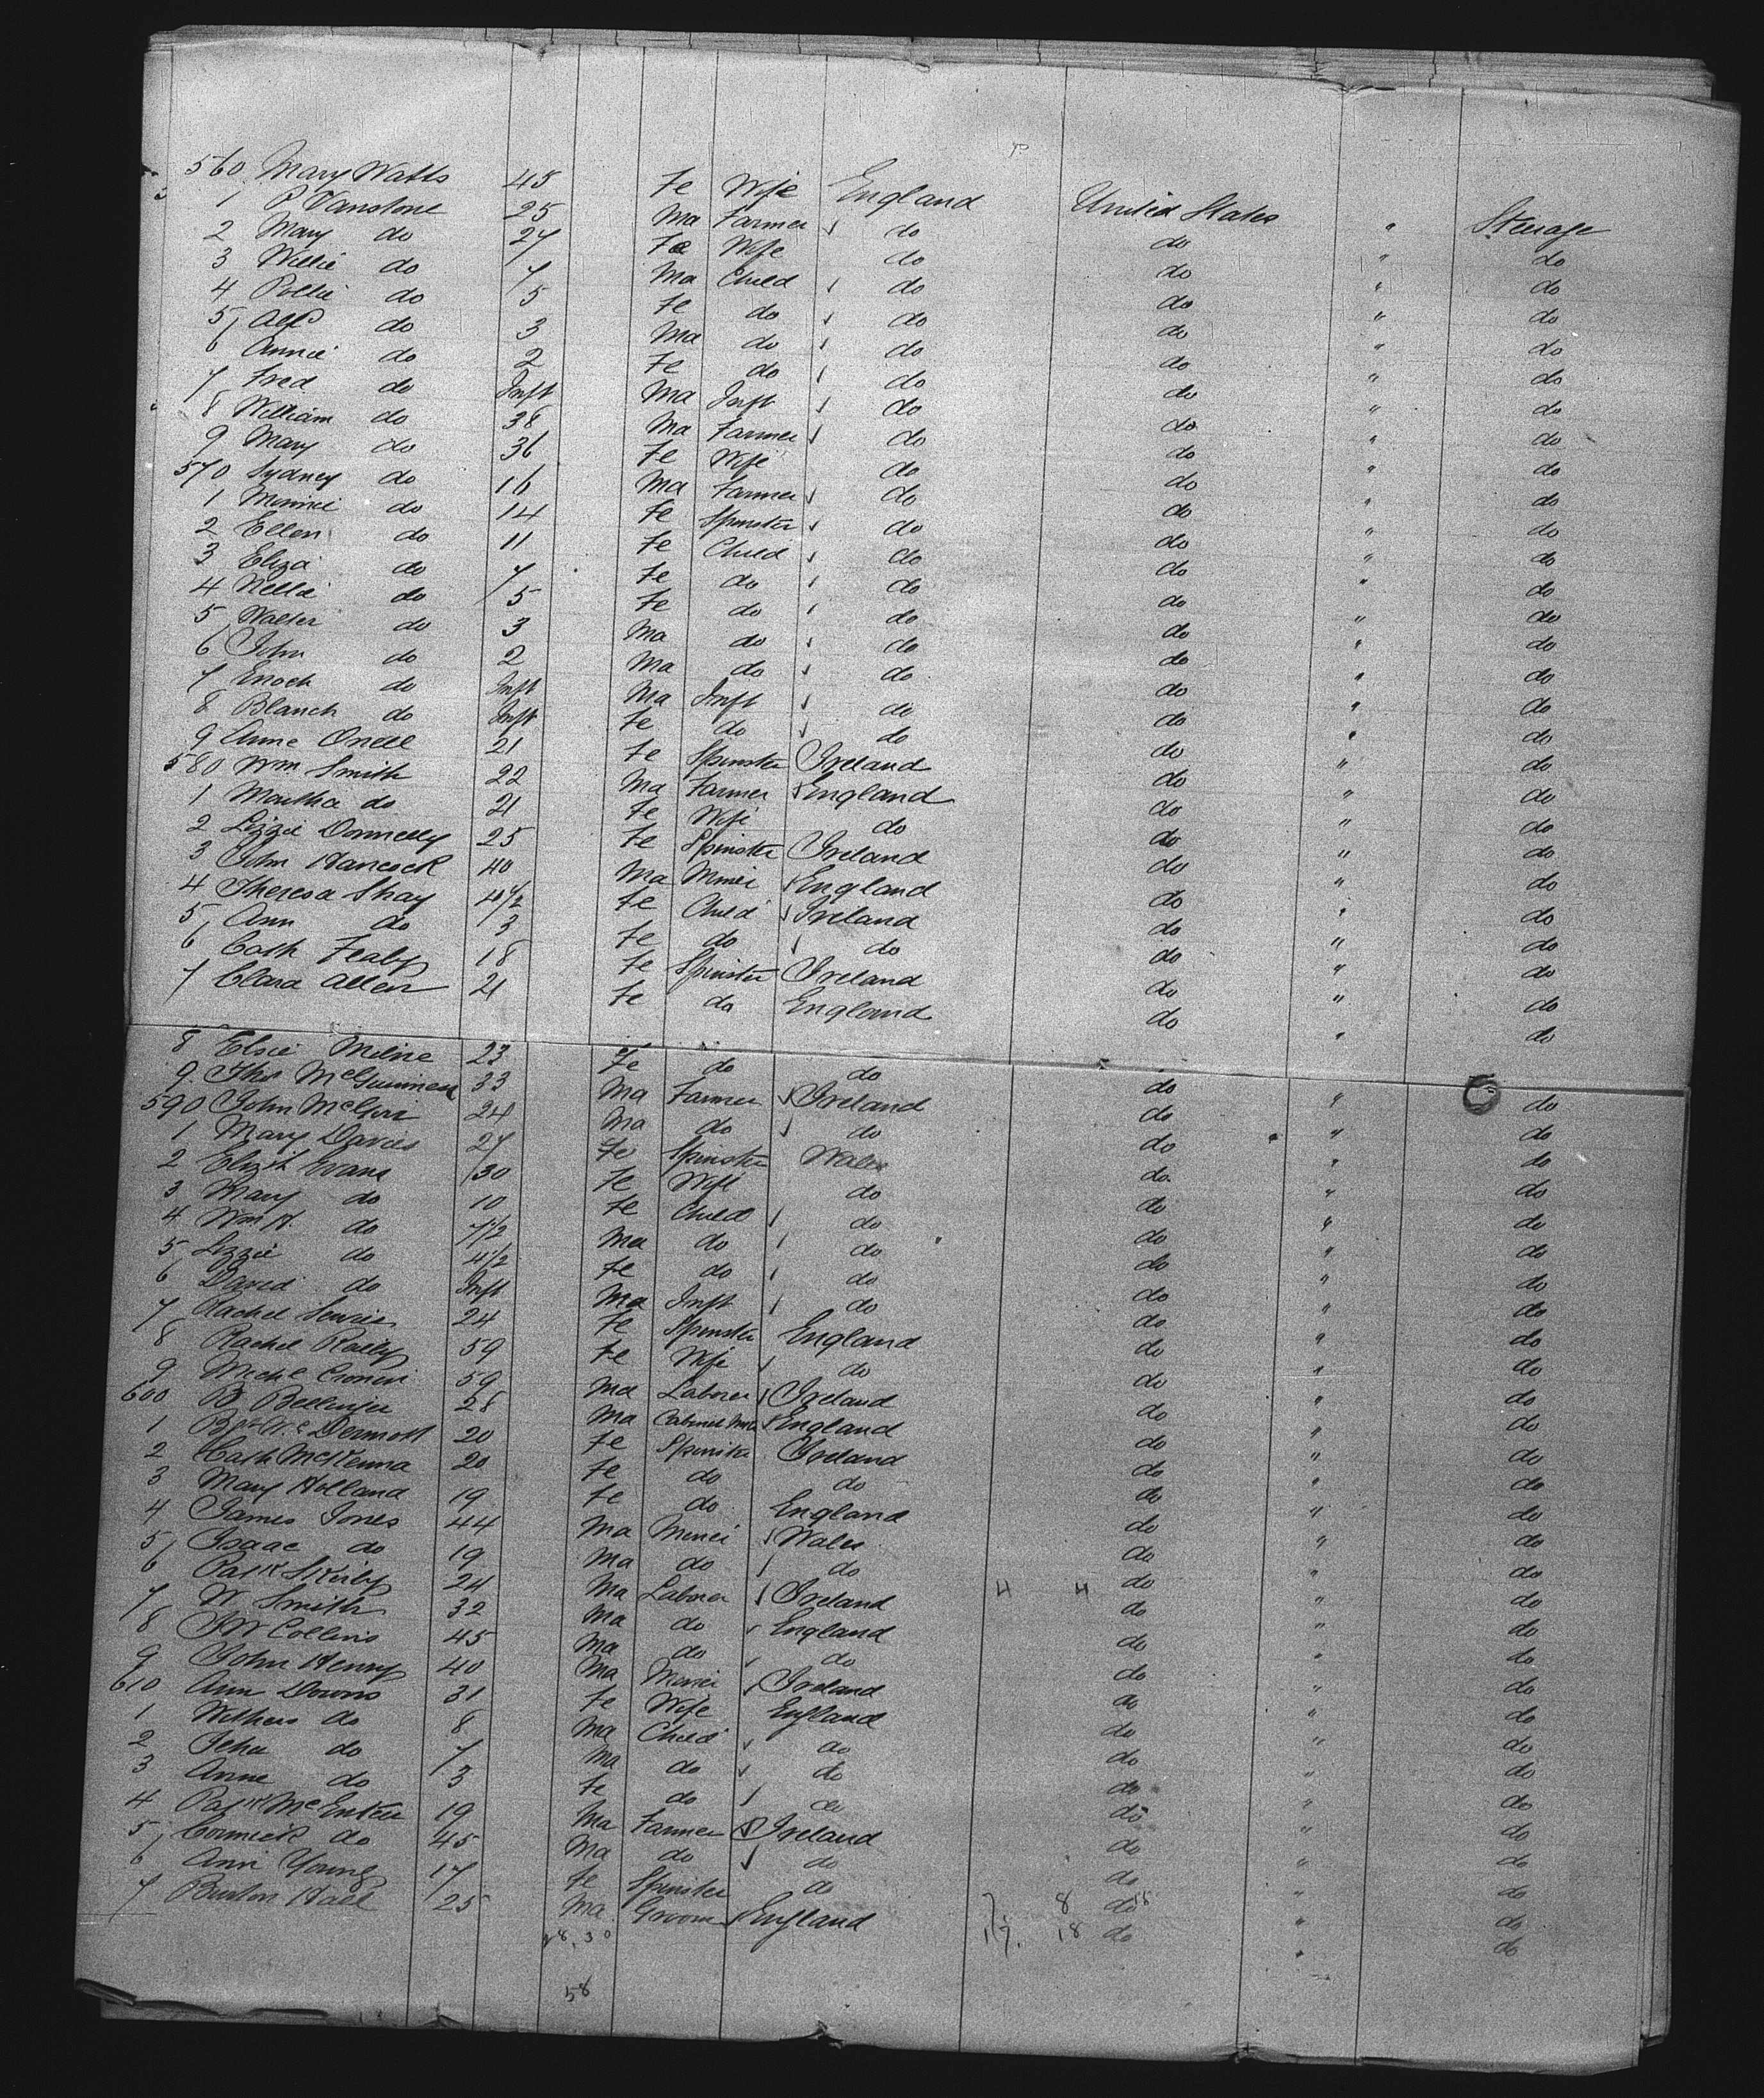 560 Mary Watts 45 Fe Wife England United States " Steerage
1 P Vanstone 25 Ma Farmer ✓ do do " do
2 Mary do 27 Fe Wife do do " do
3 Willie do 7 Ma Child ✓ do do " do
4 Pollie do 5 Fe do ✓ do do " do
5 Alf do 3 Ma do ✓ do do " do
6 Annie do 2 Fe do ✓ do do " do
7 Fred do Inft Ma Inft ✓ do do " do
8 William do 38 Ma Farmer ✓ do do " do
9 Mary do 36 Fe Wife do do " do
570 Sydney do 16 Ma Farmer ✓ do do " do
1 Minnie do 14 Fe Spinster ✓ do do " do
2 Ellen do 11 Fe Child ✓ do do " do
3 Eliza do 7 Fe do ✓ do do " do
4 Nellie do 5 Fe do ✓ do do " do
5 Walter do 3 Ma do ✓ do do " do
6 John do 2 Ma do ✓ do do " do
7 Enoch do Inft Ma Inft ✓ do do " do
8 Blanch do Inft Fe do ✓ do do " do
9 Anne Oneil 21 Fe Spinster Ireland do " do
580 Wm Smith 22 Ma Farmer ✓ England do " do
1 Martha do 21 Fe Wife do do " do
2 Lizzie Donnelly 25 Fe Spinster Ireland do " do
3 John Hancock 40 Ma Miner ✓ England do " do
4 Theresa Shay 4 1/2 Fe Child ✓ Ireland do " do
5 Ann do 3 Fe do ✓ do do " do
6 Cath 18 Fe Spinster Ireland do " do
7 Clara Allen 21 Fe do England do " do
8 Elsie Milne 23 Fe do do do " do
9 Thos McGuinness 33 Ma Farmer ✓ Ireland do " do
590 John 24 Ma do ✓ do do " do
1 Mary Davies 27 Fe Spinster Wales do " do
2 Elizth Evans 30 Fe Wife do do " do
3 Mary do 10 Fe Child ✓ do do " do
4 Wm H. do 7 1/2 Ma do ✓ do do " do
5 Lizzie do 4 1/2 Fe do ✓ do do " do
6 David do Inft Ma Inft ✓ do do " do
7 Rachel 24 Fe Spinster England do " do
8 Rachel Reilly 59 Fe Wife ✓ do do " do
9 Michl Cronin 59 Ma Laborer ✓ Ireland do " do
600 B 28 Ma Cabinet Mkr ✓ England do " do
1 Bgt McDermott 20 Fe Spinster Ireland do " do
2 Cath McKenna 20 Fe do do do " do
3 Mary Holland 19 Fe do England do " do
4 James Jones 44 Ma Miner ✓ Wales do " do
5 Isaac do 19 Ma do ✓ do do " do
6 Patk 24 Ma Laborer ✓ Ireland do " do
7 W Smith 32 Ma do ✓ England do " do
8 J W Collins 45 Ma do ✓ do do " do
9 John Henry 40 Ma Miner ✓ Ireland do " do
610 Ann Downs 31 Fe Wife England do " do
1 do 8 Ma Child ✓ do do " do
2 John do 7 Ma do ✓ do do " do
3 Anne do 3 Fe do ✓ do do " do
4 Patk McEntee 19 Ma Farmer ✓ Ireland do " do
5 Cormick do 45 Ma do ✓ do do " do
6 Ann Young 17 Fe Spinster do do " do
7 Burton Hall 25 Ma Groom ✓ England do " do
58